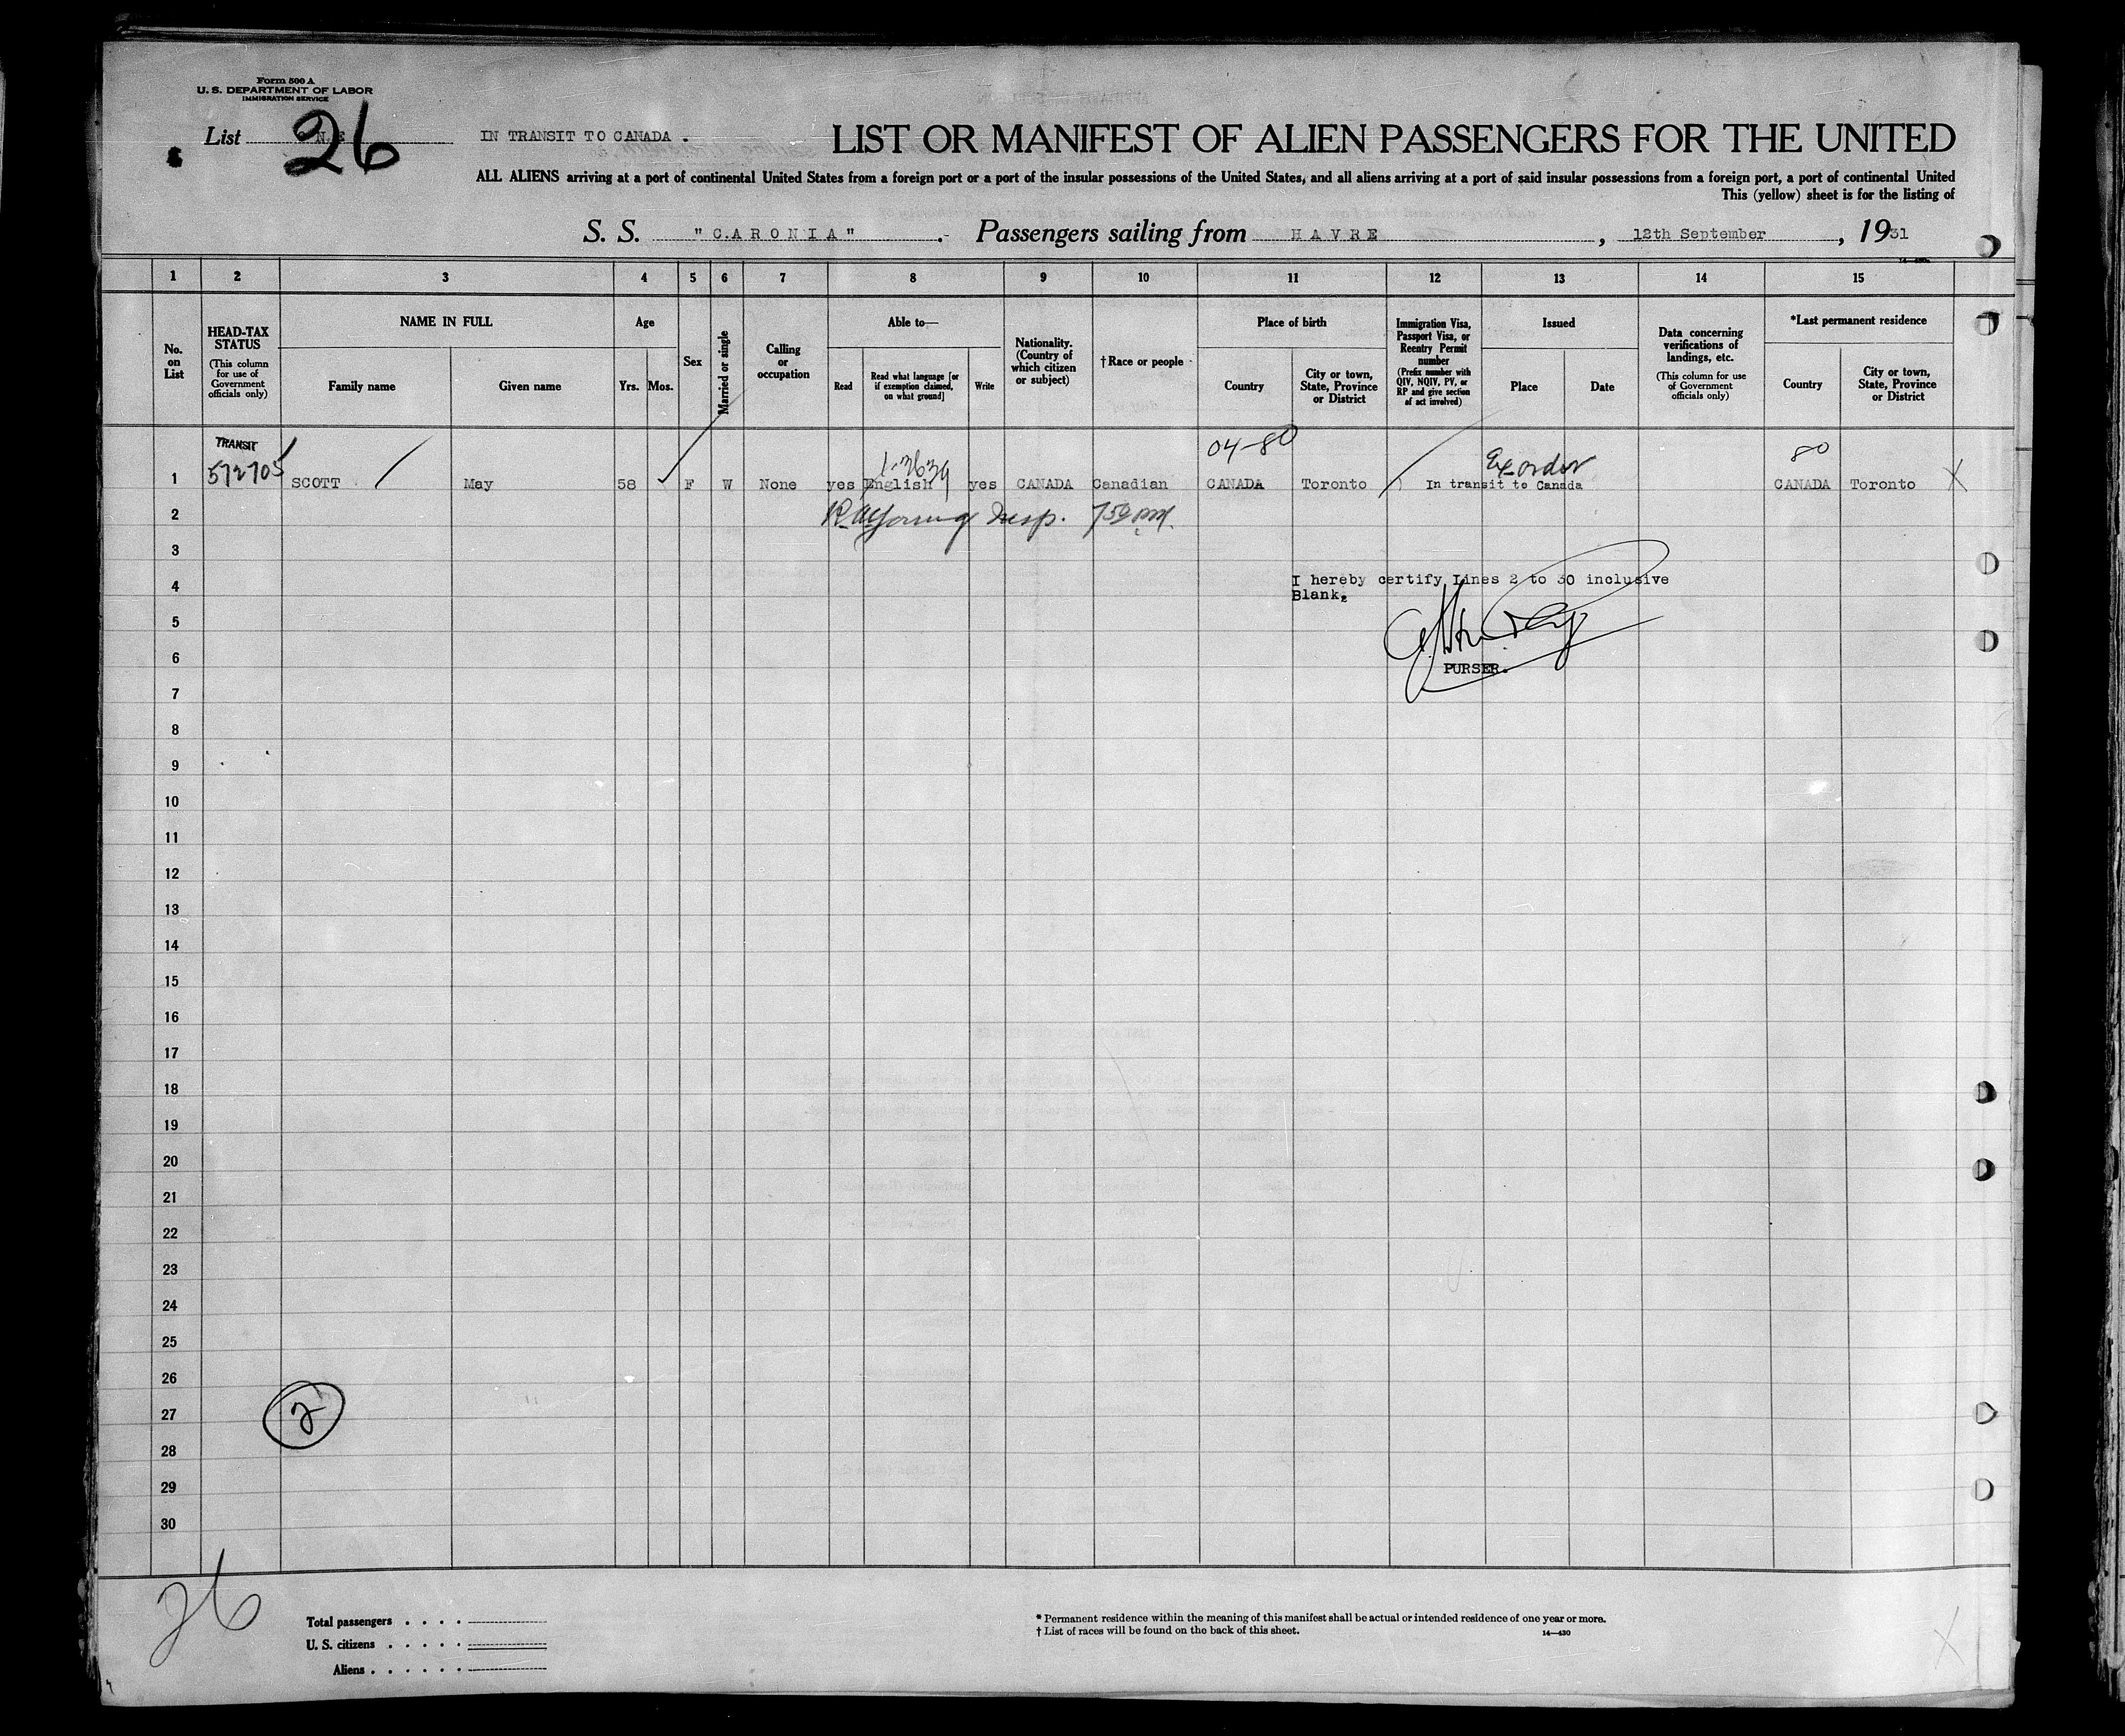 Form 500 A
U. S. DEPARTMENT OF LABOR
IMMIGRATION SERVICE
List 26
IN TRANSIT TO CANADA .
LIST OR MANIFEST OF ALIEN PASSENGERS FOR THE UNITED
ALL ALIENS arriving at a port of continental United States from a foreign port or a port of the insular possessions of the United States, and all aliens arriving at a port of said insular possessions from a foreign port, a port of continental United
This (yellow) sheet is for the listing of
S. S. "CARONIA" . Passengers sailing from HAVRE , 12th September , 1931
14-430
1 2 3 4 5 6 7 8 9 10 11 12 13 14 15
No. on List
HEAD-TAX STATUS
(This column for use of Government officials only)
NAME IN FULL
Family name
Given name
Age
Yrs. Mos.
Sex
Married or single
Calling or occupation
Able to—
Read
Read what language [or if exemption claimed, on what ground]
Write
Nationality. (Country of which citizen or subject)
† Race or people
Place of birth
Country
City or town, State, Province or District
Immigration Visa, Passport Visa, or Reentry Permit number
(Prefix number with QIV, NQIV, PV, or RP and give section of act involved)
Issued
Place
Date
Data concerning verifications of landings, etc.
(This column for use of Government officials only)
*Last permanent residence
Country
City or town, State, Province or District
TRANSIT
04-80
Ex-order
80
1 572705 SCOTT May 58 F W None yes English yes CANADA Canadian CANADA Toronto In transit to Canada CANADA Toronto X
2 Insp. 750 PM.
3
4 I hereby certify Lines 2 to 30 inclusive
Blank.
5
6 PURSER.
7
8
9
10
11
12
13
14
15
16
17
18
19
20
21
22
23
24
25
26
27 2
28
29
30
26
Total passengers . . . .
U. S. citizens . . . . .
Aliens . . . . . .
* Permanent residence within the meaning of this manifest shall be actual or intended residence of one year or more.
† List of races will be found on the back of this sheet.
14—430
X